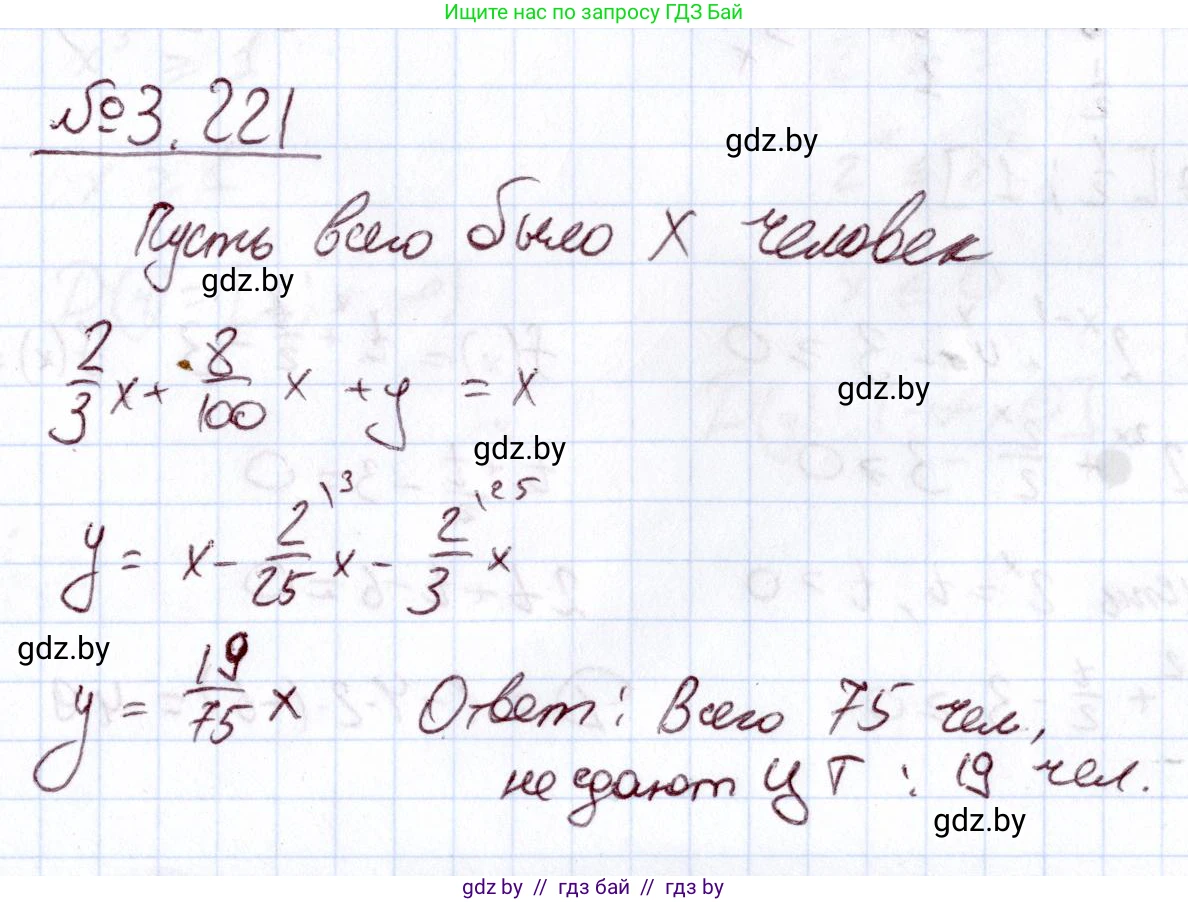 Ищите нас по запросу ГДЗ Бай
№3.221
gdz.by
Пусть всего было x человек
gdz.by
2/3 x + 8/100 x + y = x
gdz.by
gdz.by
y = x - 2/25 \3 x - 2/3 \25 x
gdz.by
y = 19/75 x Ответ: Всего 75 чел,
не сдают ЦТ: 19 чел.
gdz.by
gdz.by // гдз бай // гдз by